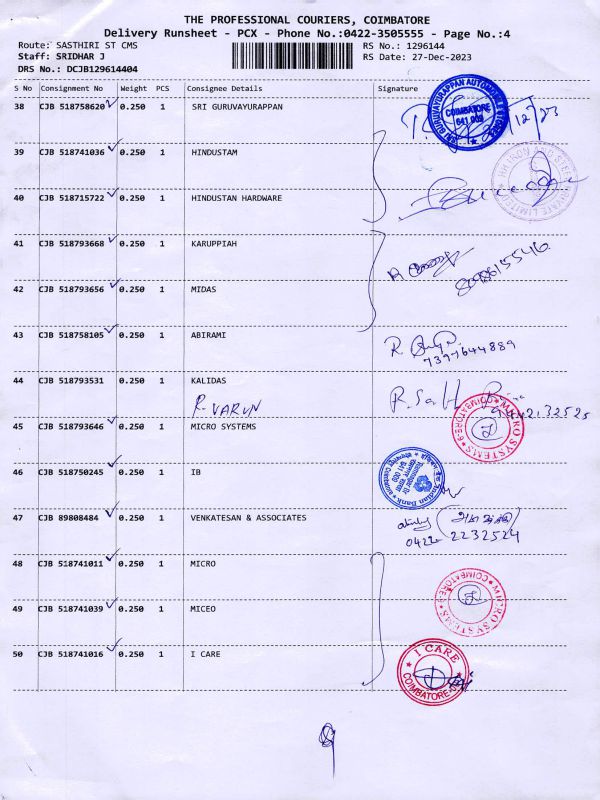 THE PROFESSIONAL COURIERS, COIMBATORE
Delivery Runsheet - PCX - Phone No.:0422-3505555 - Page No.:4
Route: SASTHIRI ST CMS RS No.: 1296144
Staff: SRIDHAR J RS Date: 27-Dec-2023
DRS No.: DCJB129614404
S No Consignment No Weight PCS Consignee Details Signature
38 CJB 518758620 0.250 1 SRI GURUVAYURAPPAN
SRI GURUVAYURAPPAN AUTOMOBILE STORES
COIMBATORE
641 009
12/23
39 CJB 518741036 0.250 1 HINDUSTAM
40 CJB 518715722 0.250 1 HINDUSTAN HARDWARE
PRIVATE LIMITED
41 CJB 518793668 0.250 1 KARUPPIAH
42 CJB 518793656 0.250 1 MIDAS
43 CJB 518758105 0.250 1 ABIRAMI
R
7397644889
44 CJB 518793531 0.250 1 KALIDAS
R. VARUN
45 CJB 518793646 0.250 1 MICRO SYSTEMS
MICRO SYSTEMS
COIMBATORE-9
46 CJB 518750245 0.250 1 IB
Indian Bank
641 009
Coimbatore
47 CJB 89808484 0.250 1 VENKATESAN & ASSOCIATES
0422 2232524
48 CJB 518741011 0.250 1 MICRO
MICRO SYSTEMS
COIMBATORE-9
49 CJB 518741039 0.250 1 MICEO
50 CJB 518741016 0.250 1 I CARE
I CARE
COIMBATORE